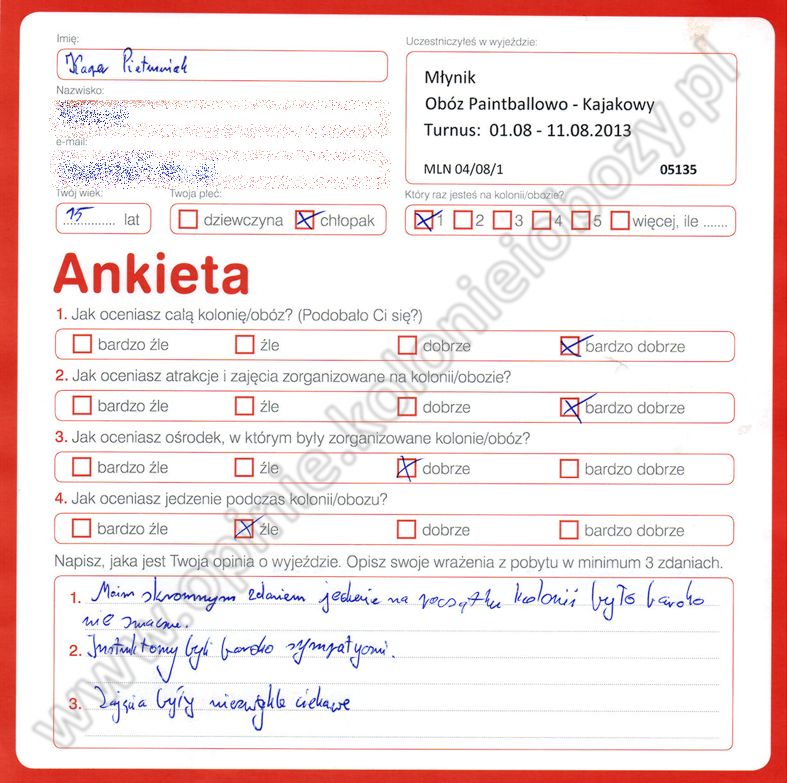 Imię:
Kacper Pietruniak
Nazwisko:
e-mail:
Twój wiek:
15 lat
Twoja płeć:
dziewczyna chłopak
Uczestniczyłeś w wyjeździe:
Młynik
Obóz Paintballowo - Kajakowy
Turnus: 01.08 - 11.08.2013
MLN 04/08/1 05135
Który raz jesteś na kolonii/obozie?
1 2 3 4 5 więcej, ile .......
Ankieta
1. Jak oceniasz całą kolonię/obóz? (Podobało Ci się?)
bardzo źle źle dobrze bardzo dobrze
2. Jak oceniasz atrakcje i zajęcia zorganizowane na kolonii/obozie?
bardzo źle źle dobrze bardzo dobrze
3. Jak oceniasz ośrodek, w którym były zorganizowane kolonie/obóz?
bardzo źle źle dobrze bardzo dobrze
4. Jak oceniasz jedzenie podczas kolonii/obozu?
bardzo źle źle dobrze bardzo dobrze
Napisz, jaka jest Twoja opinia o wyjeździe. Opisz swoje wrażenia z pobytu w minimum 3 zdaniach.
1. Moim skromnym zdaniem jedzenie na początku kolonii było bardzo
nie smaczne.
2. Instruktorzy byli bardzo sympatyczni.
3. Zajęcia były niezwykle ciekawe
www.opinie.kolonieiobozy.pl